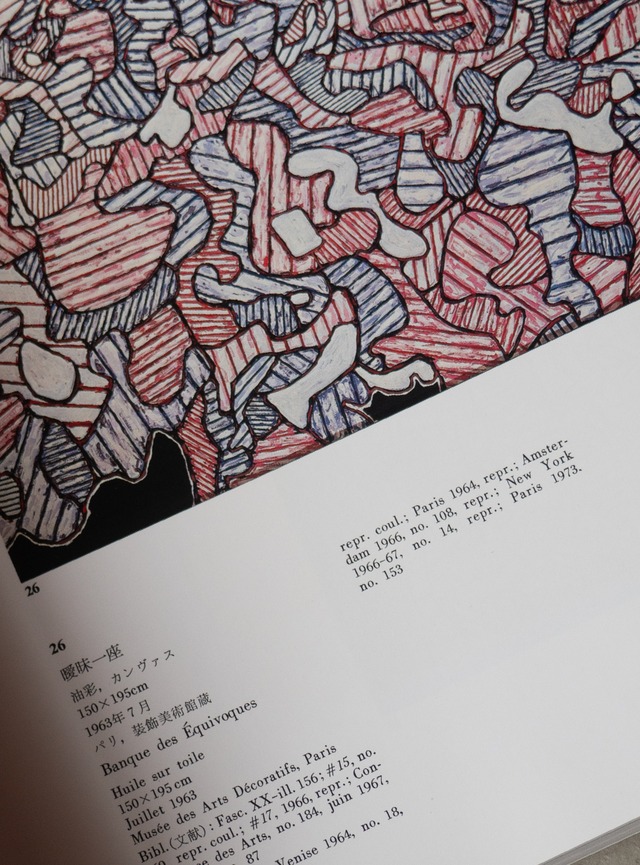 26
26
曖昧一座
油彩，カンヴァス
150×195cm
1963年7月
パリ，装飾美術館蔵
Banque des Équivoques
Huile sur toile
150×195 cm
Juillet 1963
Musée des Arts Décoratifs, Paris
Bibl.(文献): Fasc. XX-ill. 156; #15, no.
repr. coul.; #17, 1966, repr.; Con-
des Arts, no. 184, juin 1967,
87
Venise 1964, no. 18,
repr. coul.; Paris 1964, repr.; Amster-
dam 1966, no. 108, repr.; New York
1966-67, no. 14, repr.; Paris 1973.
no. 153